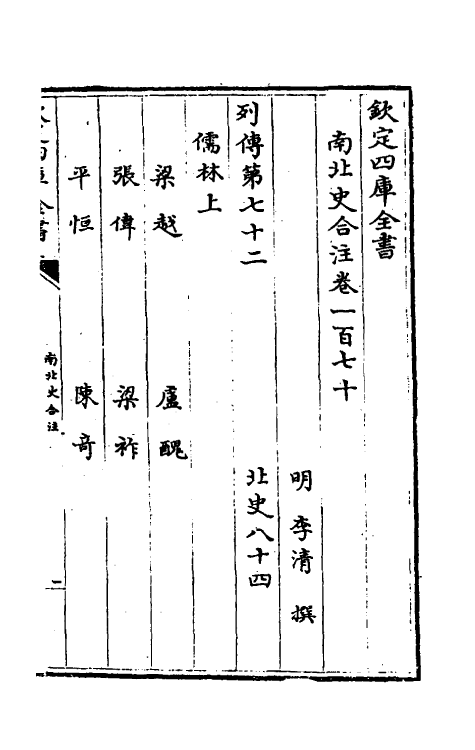 欽定四庫全書
南北史合注卷一百七十
明 李清 撰
列傳第七十二 北史八十四
儒林上
梁越 盧醜
張偉 梁祚
平恒 陳奇
南北史合注